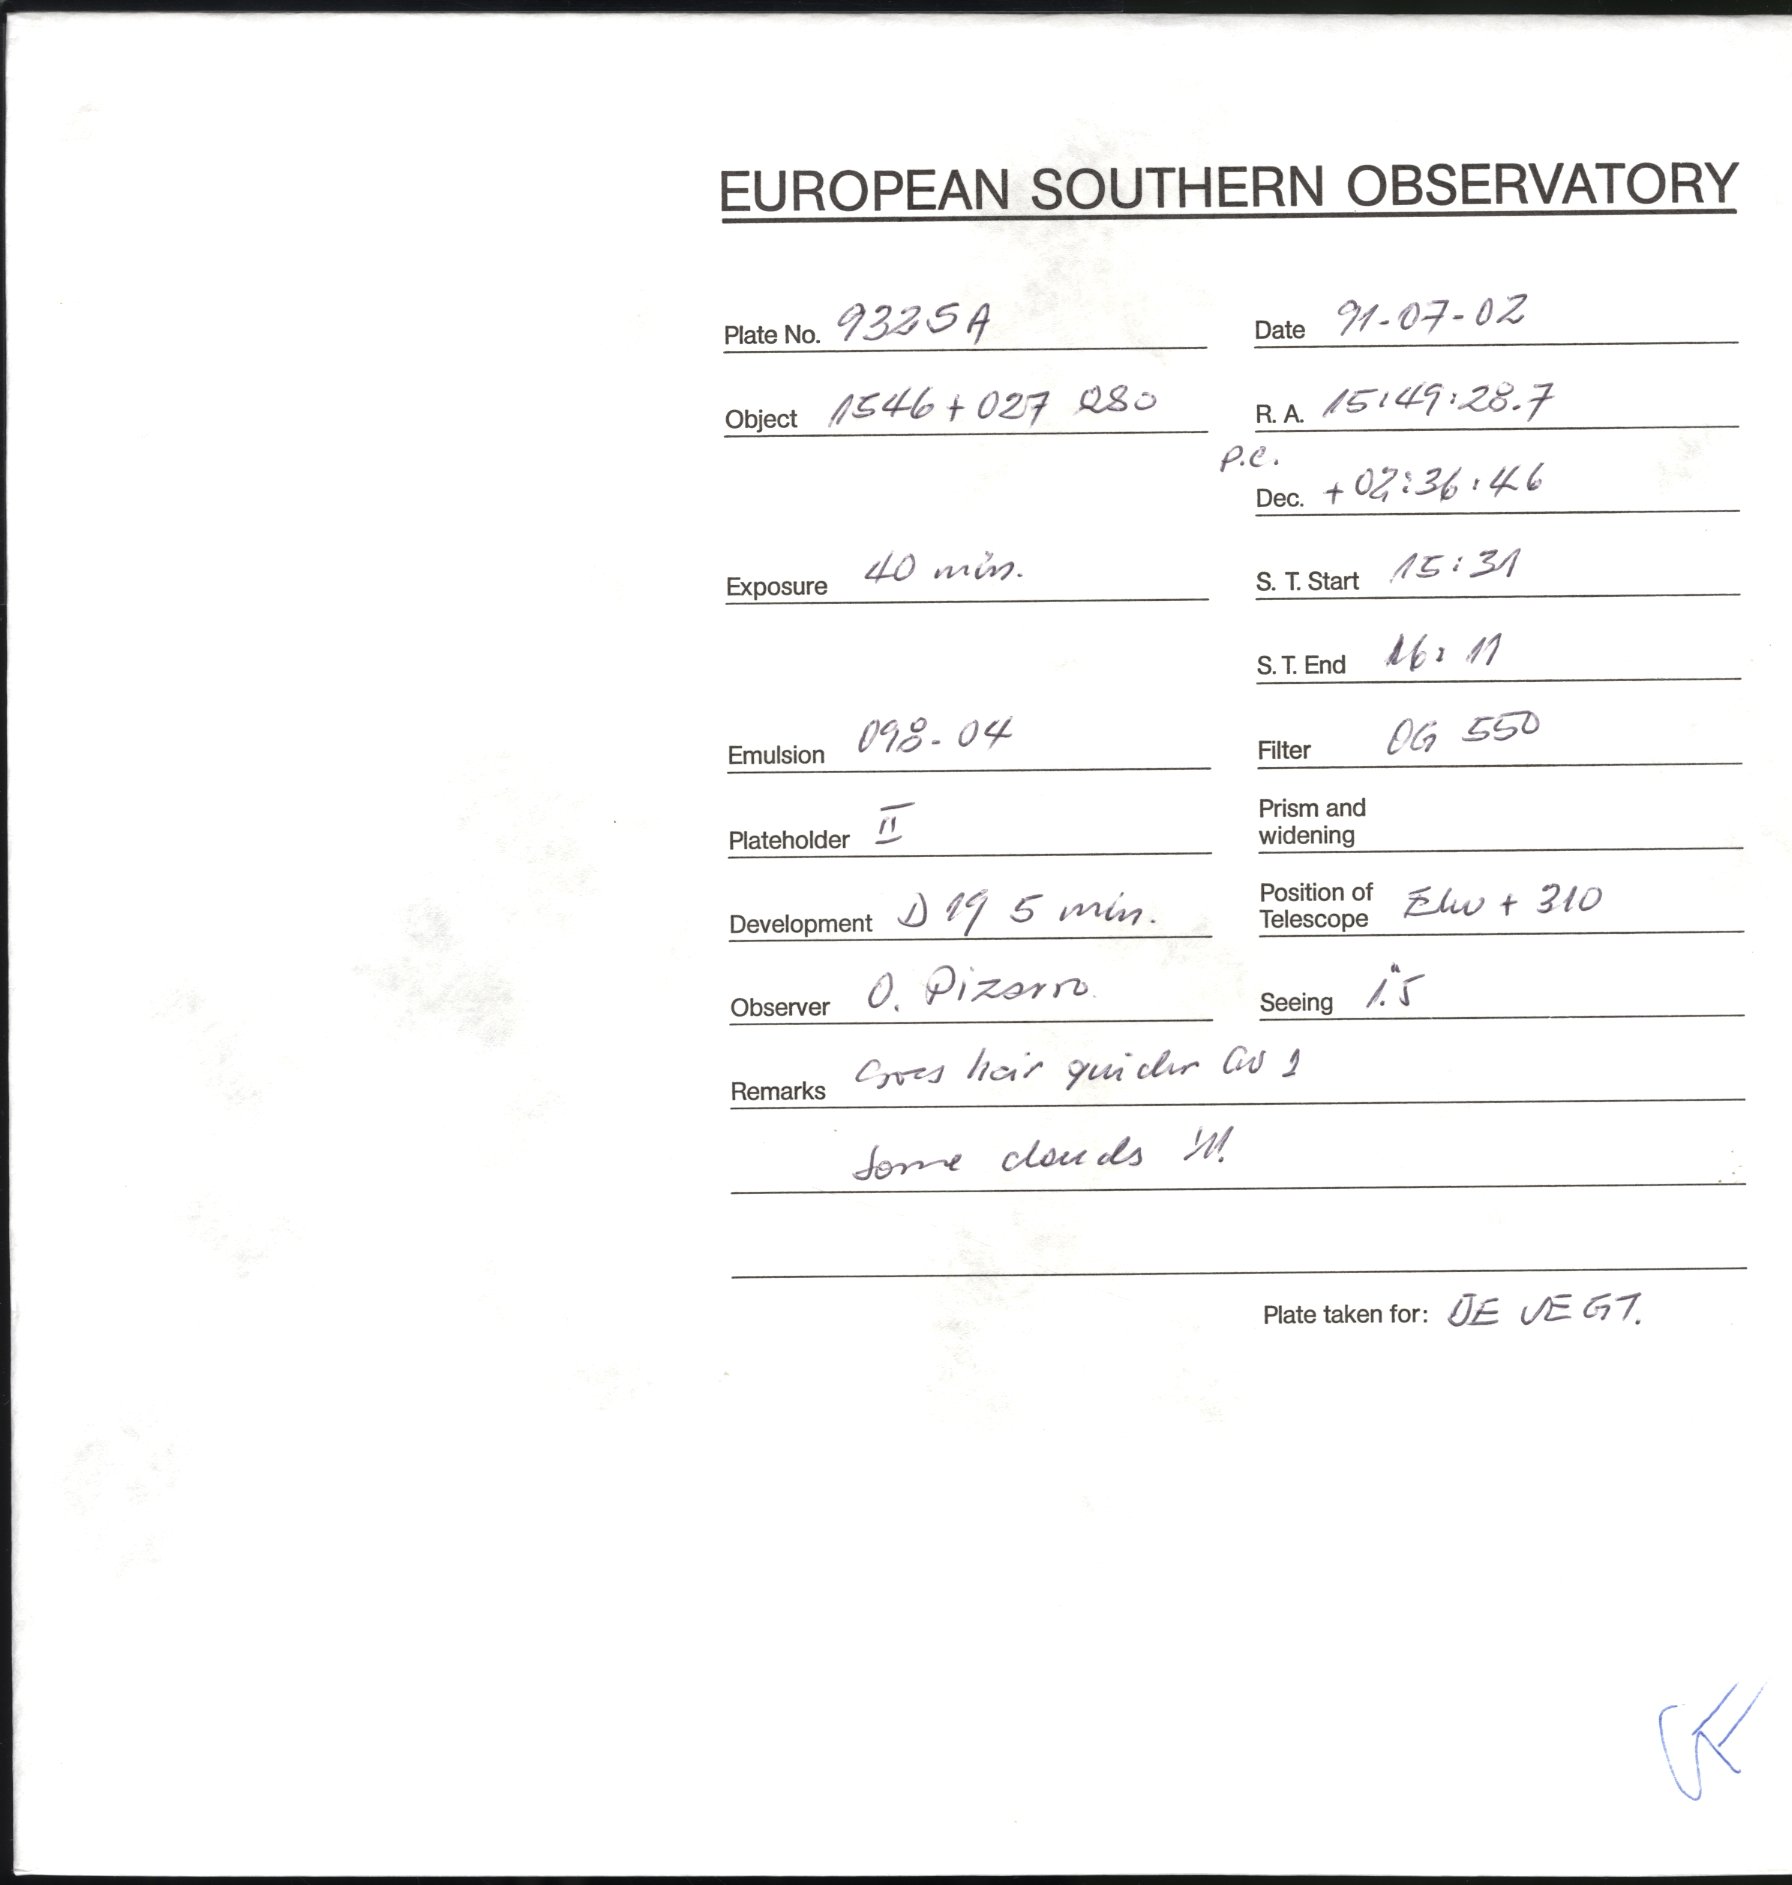 EUROPEAN SOUTHERN OBSERVATORY
Plate No. 9325A
Date 91-07-02
Object 1546+027 QSO
R. A. 15:49:28.7
P.C.
Dec. +02:36:46
Exposure 40 min.
S. T. Start 15:31
S. T. End 16:11
Emulsion 098-04
Filter OG 550
Plateholder II
Prism and
widening
Development D19 5 min.
Position of
Telescope + 310
Observer O. Pizarro
Seeing 1."5
Remarks Cross hair
Some clouds !!!
Plate taken for: DE VEGT.